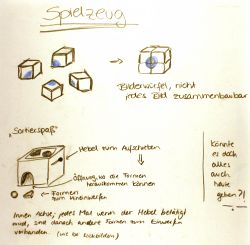 Spielzeug
Bilderwürfel, nicht
jedes Bild zusammenbaubar
"Sortierspaß"
Hebel zum Aufschieben
Öffnung, wo die Formen
herauskommen können
Formen
zum Hineinwerfen
Könnte
es doch
alles
auch
heute
geben?!
Innen Achse, jedes Mal wenn der Hebel betätigt
wird, sind danach andere Formen zum Einwerfen
vorhanden.